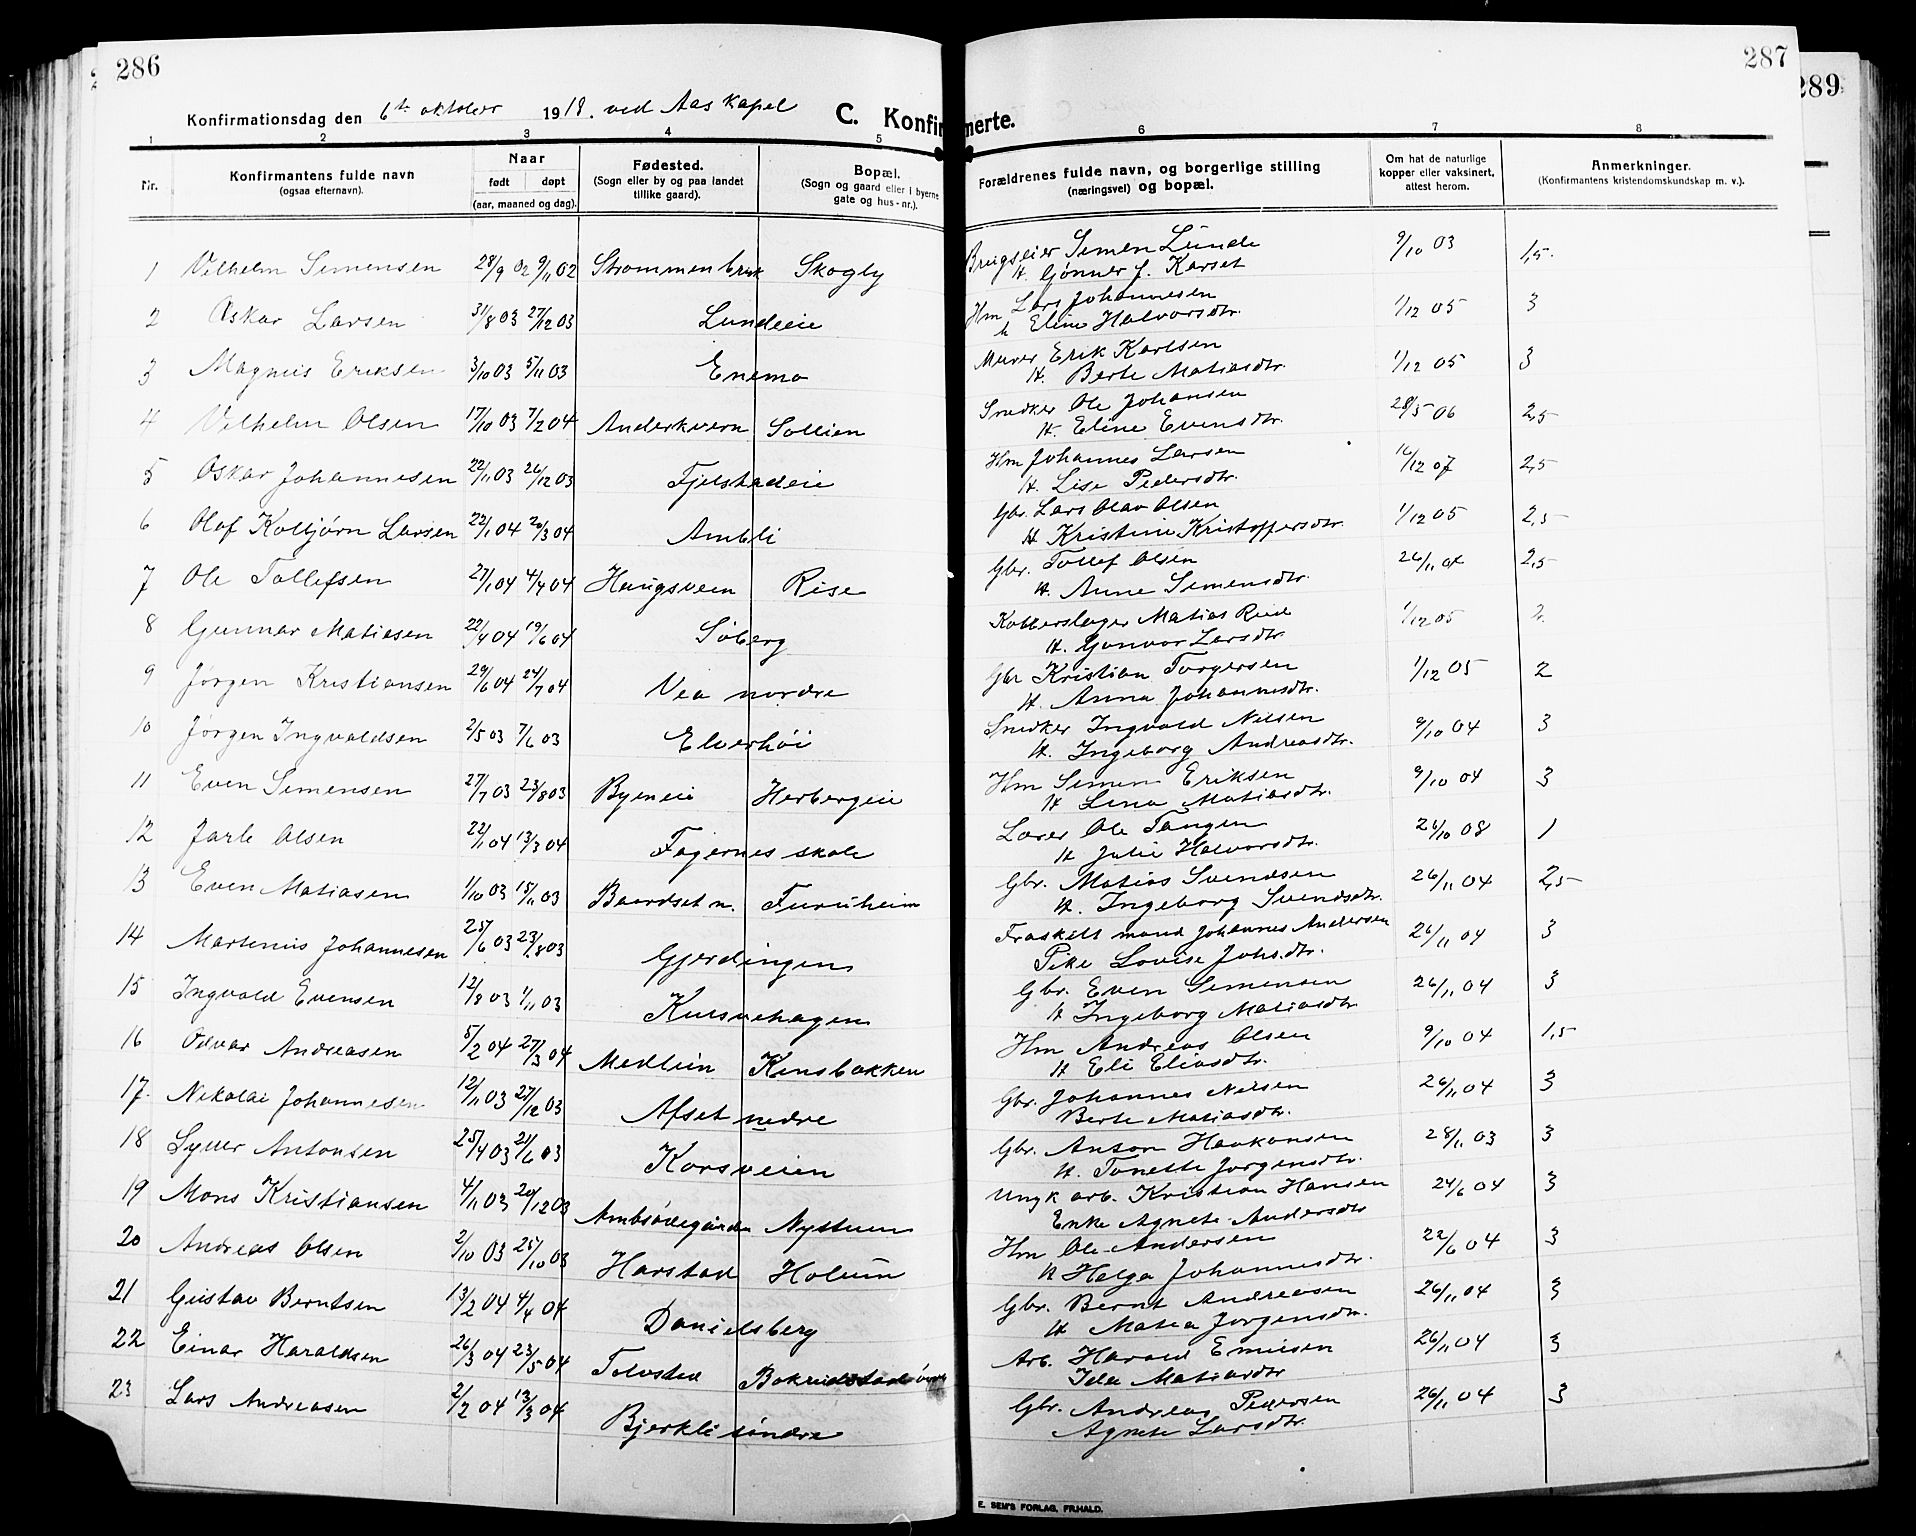 286
287
289
Konfirmationsdag den 6te oktober 1918. ved Aas kapel
C. Konfirmerte.
1 2 3 4 5 6 7 8
Nr.
Konfirmantens fulde navn
(ogsaa efternavn).
Naar
født døpt
(aar, maaned og dag).
Fødested.
(Sogn eller by og paa landet
tillike gaard).
Bopæl.
(Sogn og gaard eller i byerne
gate og hus-nr.).
Forældrenes fulde navn, og borgerlige stilling
(næringsvei) og bopæl.
Om hat de naturlige
kopper eller vaksinert,
attest herom.
Anmerkninger.
(Konfirmantens kristendomskundskap m. v.).
1 Vilhelm Simensen 28/9 02 9/11 02 Strømmenbruk Skogly Brugseier Simen Lunde 9/10 03 1,5
H. Gjønner J. Karset
2 Oskar Larsen 31/8 03 27/12 03 Lundeeie Hm Lars Johannesen 1/12 05 3
H Eline Halvorsdtr.
3 Magnus Eriksen 3/10 03 5/11 03 Enemo Murer Erik Karlsen 1/12 05 3
H. Berte Matiasdtr.
4 Vilhelm Olsen 17/10 03 7/2 04 Anderkvern Sollien Snedker Ole Johansen 28/5 06 2,5
H. Eline Evensdtr.
5 Oskar Johannesen 22/11 03 26/12 03 Fjelstadeie Hm Johannes Larsen 16/12 07 2,5
H. Lise Pedersdtr.
6 Olaf Kolbjørn Larsen 22/1 04 20/3 04 Ambli Gbr. Lars Olav Olsen 1/12 05 2,5
H Kristine Kristoffersdtr.
7 Ole Tollefsen 27/1 04 4/4 04 Haugsveen Rise Gbr. Tollef Olsen 26/11 04 2,5
H. Anne Simensdtr.
8 Gunnar Matiasen 22/4 04 19/6 04 Soberg Kobberslager Matias Rud 1/12 05 2.
H. Gunvor Larsdtr.
9 Jørgen Kristiansen 29/6 04 24/7 04 Vea nordre Gbr Kristian Torgersen 1/12 05 2
H. Anna Johannesdtr.
10 Jørgen Ingvaldsen 2/5 03 7/6 03 Elverhøi Snedker Ingvald Nilsen 9/10 04 3
H. Ingeborg Andreasdtr.
11 Even Simensen 27/7 03 23/8 03 Byeneie Herbergeie Hm Simen Eriksen 9/10 04 3
H Lina Matiasdtr.
12 Jarle Olsen 22/1 04 13/3 04 Fagernes skole Lærer Ole Tangen 26/10 08 1
H Julie Halvorsdtr.
13 Even Matiasen 1/10 03 15/11 03 Baardset n. Furuheim Gbr. Matias Svendsen 26/11 04 2,5
H. Ingeborg Svendsdtr.
14 Martinius Johannesen 25/6 03 23/8 03 Gjerdingen Fraskilt mand Johannes Andersen 26/11 04 3
Pike Lovise Johsdtr.
15 Ingvald Evensen 12/8 03 1/11 03 Kusvehagen Gbr. Even Simensen 26/11 04 3
H Ingeborg Matiasdtr
16 Odvar Andreasen 5/2 04 27/3 04 Medlein Kinsbakken Hm Andreas Olsen 9/10 04 1,5
H Eli Eliasdtr.
17. Nikolai Johannesen 12/11 03 27/12 03 Afset nedre Gbr. Johannes Nilsen 26/11 04 3
Berte Matiasdtr.
18 Syver Antonsen 25/4 03 21/6 03 Korsveien Gbr. Anton Haakonsen 28/11 03 3
H. Tonette Jørgensdtr.
19 Mons Kristiansen 4/11 03 20/12 03 Ambsødegården Nystuen Ungk arb. Kristian Hansen 24/6 04 3
Enke Agnete Andersdtr
20 Andreas Olsen 2/10 03 25/10 03 Harstad Holum Hm Ole Andersen 22/6 04 3
H Helga Johannesdtr.
21 Gustav Berntsen 13/2 04 4/4 04 Danielsberg Gbr. Bernt Andreasen 26/11 04 3
H Matea Jørgensdtr.
22 Einar Haraldsen 26/3 04 23/5 04 Tolvstad Arb. Harald Emilsen 26/11 04 3
Ida Matiasdtr
23 Lars Andreasen 2/2 04 13/3 04 Bjerkli søndre Gbr. Andreas Pedersen 26/11 04 3
Agnete Larsdtr.
E. SEM'S FORLAG, FR.HALD.